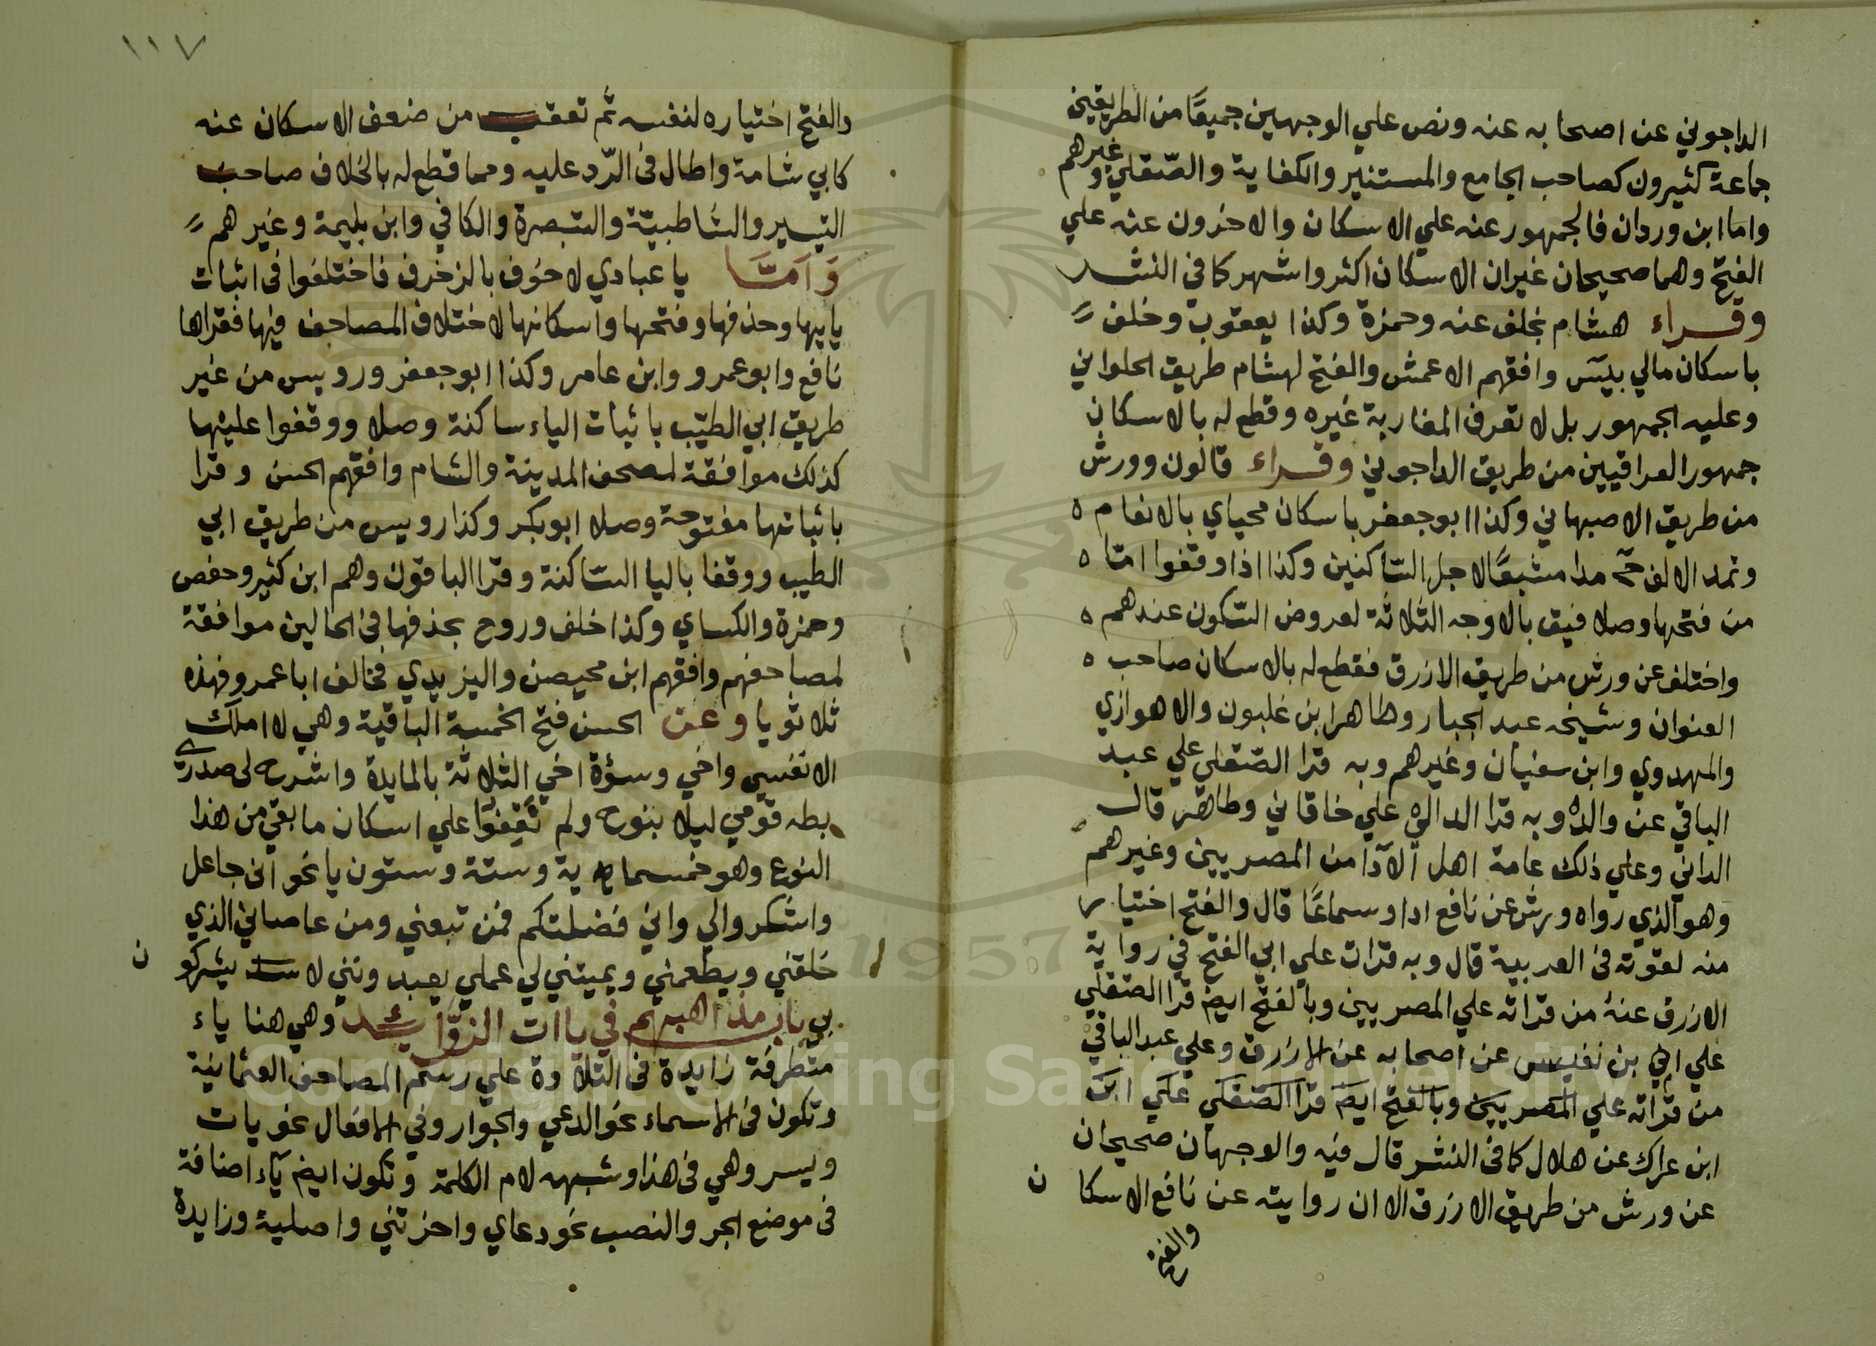 الداجوني عن اصحابه عنه ونص علي الوجهين جميعًا من الطريقين
جماعة كثيرون كصاحب الجامع والمستنير والكفاية والصّقلي وغيرهم
واما ابن وردان فالجمهور عنه علي الاسكان والاخرون عنه علي
الفتح وهما صحيحان غير ان الاسكان اكثر واشهر كما في النشر
وقراء هشام بخلف عنه وحمزة وكذا يعقوب وخلف
باسكان مالي بيسٓ وافقهم الاعمش والفتح لهشام طريق الحلواني
وعليه الجمهور بل لا تعرف المغاربة غيره وقطع له بالاسكان
جمهور العراقيين من طريق الداجوني وقراء قالون وورش
من طريق الاصبهاني وكذا ابو جعفر باسكان محياي بالانعام ه
وتمد الالف مدا مشبعًا لاجل السّاكنين وكذا اذا وقفوا امّا ه
من فتحها وصلا فيقف بالاوجه الثلاثة لعروض السّكون عندهم ه
واختلف عن ورش من طريق الازرق فقطع له بالاسكان صاحب ه
العنوان وشيخه عبد الجبار وطاهر ابن غلبون والاهوازي
والمهدوي وابن سفيان وغيرهم وبه قرا الصّقلي علي عبد
الباقي عن والده وبه قرا الداني علي خاقاني وطاهر قال
الداني وعلي ذلك عامة اهل الآدا من المصريين وغيرهم
وهو الذي رواه ورش عن نافع ادا وسماعًا قال والفتح اختيار
منه لقوته في العربية قال وبه قرات علي ابي الفتح في رواية
الازرق عنهُ من قراته علي المصريين وبالفتح ايضا قرا الصّقلي
علي ابي بن نفيس عن اصحابه عن الازرق وعلي عبد الباقي
من قراته علي المصريين وبالفتح ايضا قرا الصّقلي علي ابن
ابن عراك عن هلال كما في النشر قال فيه والوجهان صحيحان
عن ورش من طريق الازرق الا ان روايته عن نافع الاسكان
والفتح
١١٧
والفتح اختياره لنفسه ثم تعقب من ضعف الاسكان عنه
كابي شامة واطال في الرّد عليه ومما قطع له بالخلاف صاحب
التيسير والشاطبيّة والتبصرة والكافي وابن بليمة وغيرهم
وَاَمَّا يا عبادي لا خوف بالزخرف فاختلفوا في اثبات
يايها وحذفها وفتحها واسكانها لاختلاف المصاحف فيها فقراها
نافع وابو عمرو وابن عامر وكذا ابو جعفر ورويس من غير
طريق ابي الطيّب باثبات الياء ساكنة وصلا ووقفوا عليها
كذلك موافقة لمصحف المدينة والشام وافقهم الحسن وقرا
باثباتها مفتوحة وصلا ابو بكر وكذا رويس من طريق ابي
الطيب ووقفا باليا السّاكنة وقرا الباقون وهم ابن كثير وحفص
وحمزة والكساي وكذا خلف وروح بحذفها في الحالين موافقة
لمصاحفهم وافقهم ابن محيصن واليزيدي فخالف ابا عمرو فهذه
ثلاثو يا وعن الحسن فتح الخمسة الباقية وهي لا املك
الا نفسي واخي وسوءة اخي الثلاثة بالمايدة واشرح لي صدري
بطه قومي ليلا بنوح ولم تَقِفُوا علي اسكان ما بقي من هذا
النوع وهو خمسماية وستة وستون يا نحو اني جاعل
واشكروا لي واني فضلتكم فمن تبعني ومن عاصاني الذي
خلقني ويطعمني ويميتني لي عملي يعبدونني لا يشركون
بي باب مذاهبهم في ياات الزوّائد وهي هنا ياء
متطرفة زايدة في التلاوة علي رسم المصاحف العثمانية
وتكون في الاسماء نحو الداعي والجوار وفي الافعال نحو يات
ويسر وهي في هذا وشبهه لام الكلمة وتكون ايضا يآء اضافة
في موضع الجر والنصب نحو دعاي واخرتني واصلية وزايدة
1957
Copyright © King Saud University